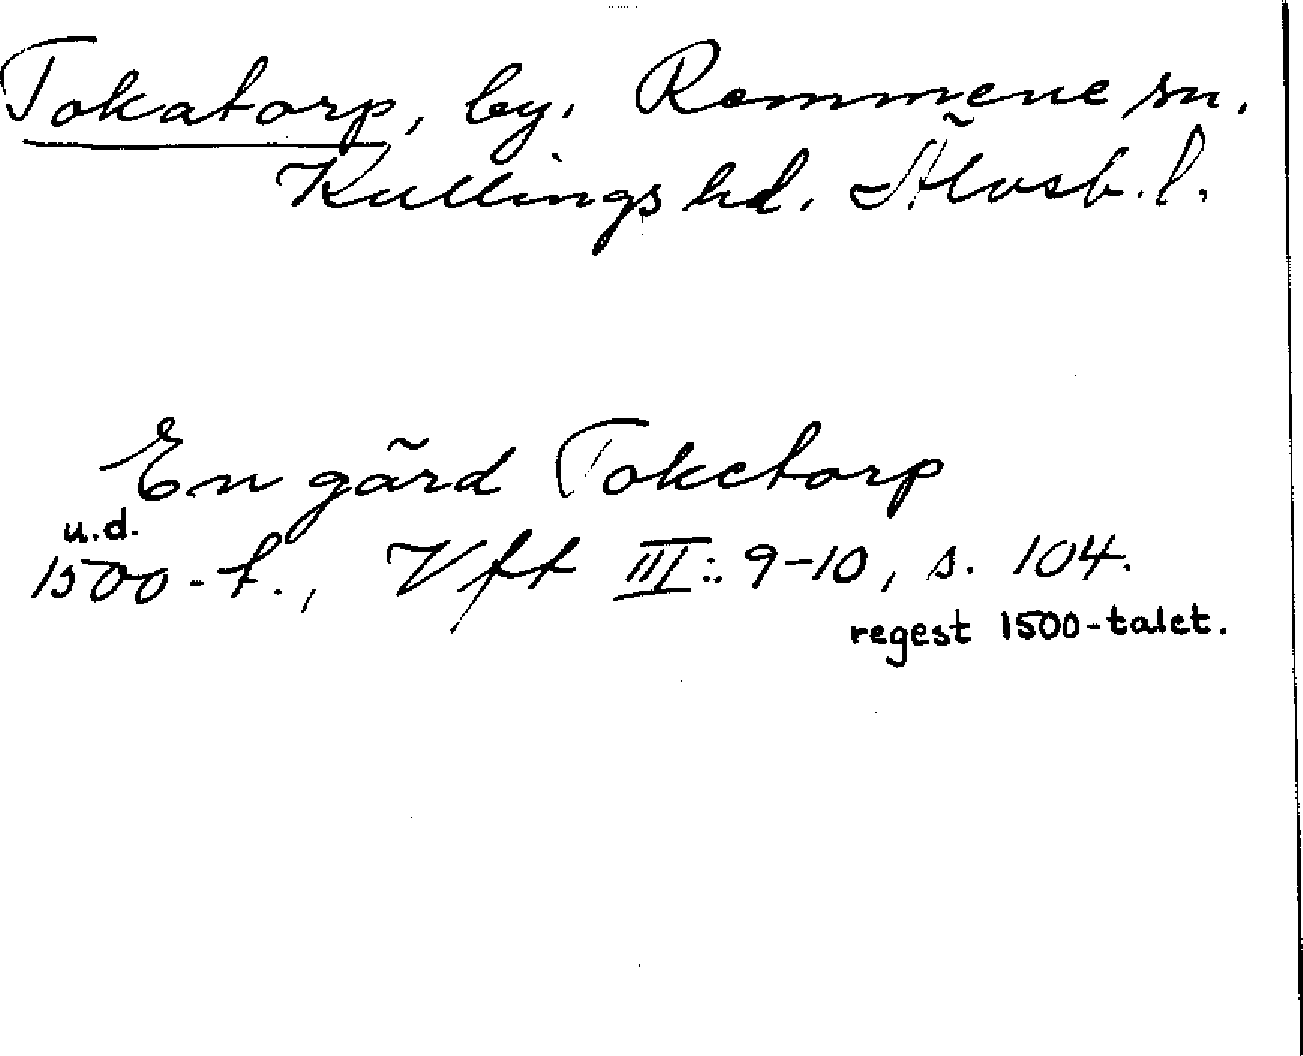 Tokatorp, by. Remmene sn.
Kullings hd. Älvsb. l.
En gård Toketorp
u.d.
1500-t., Vft III: 9-10, s. 104.
regest 1500-talet.